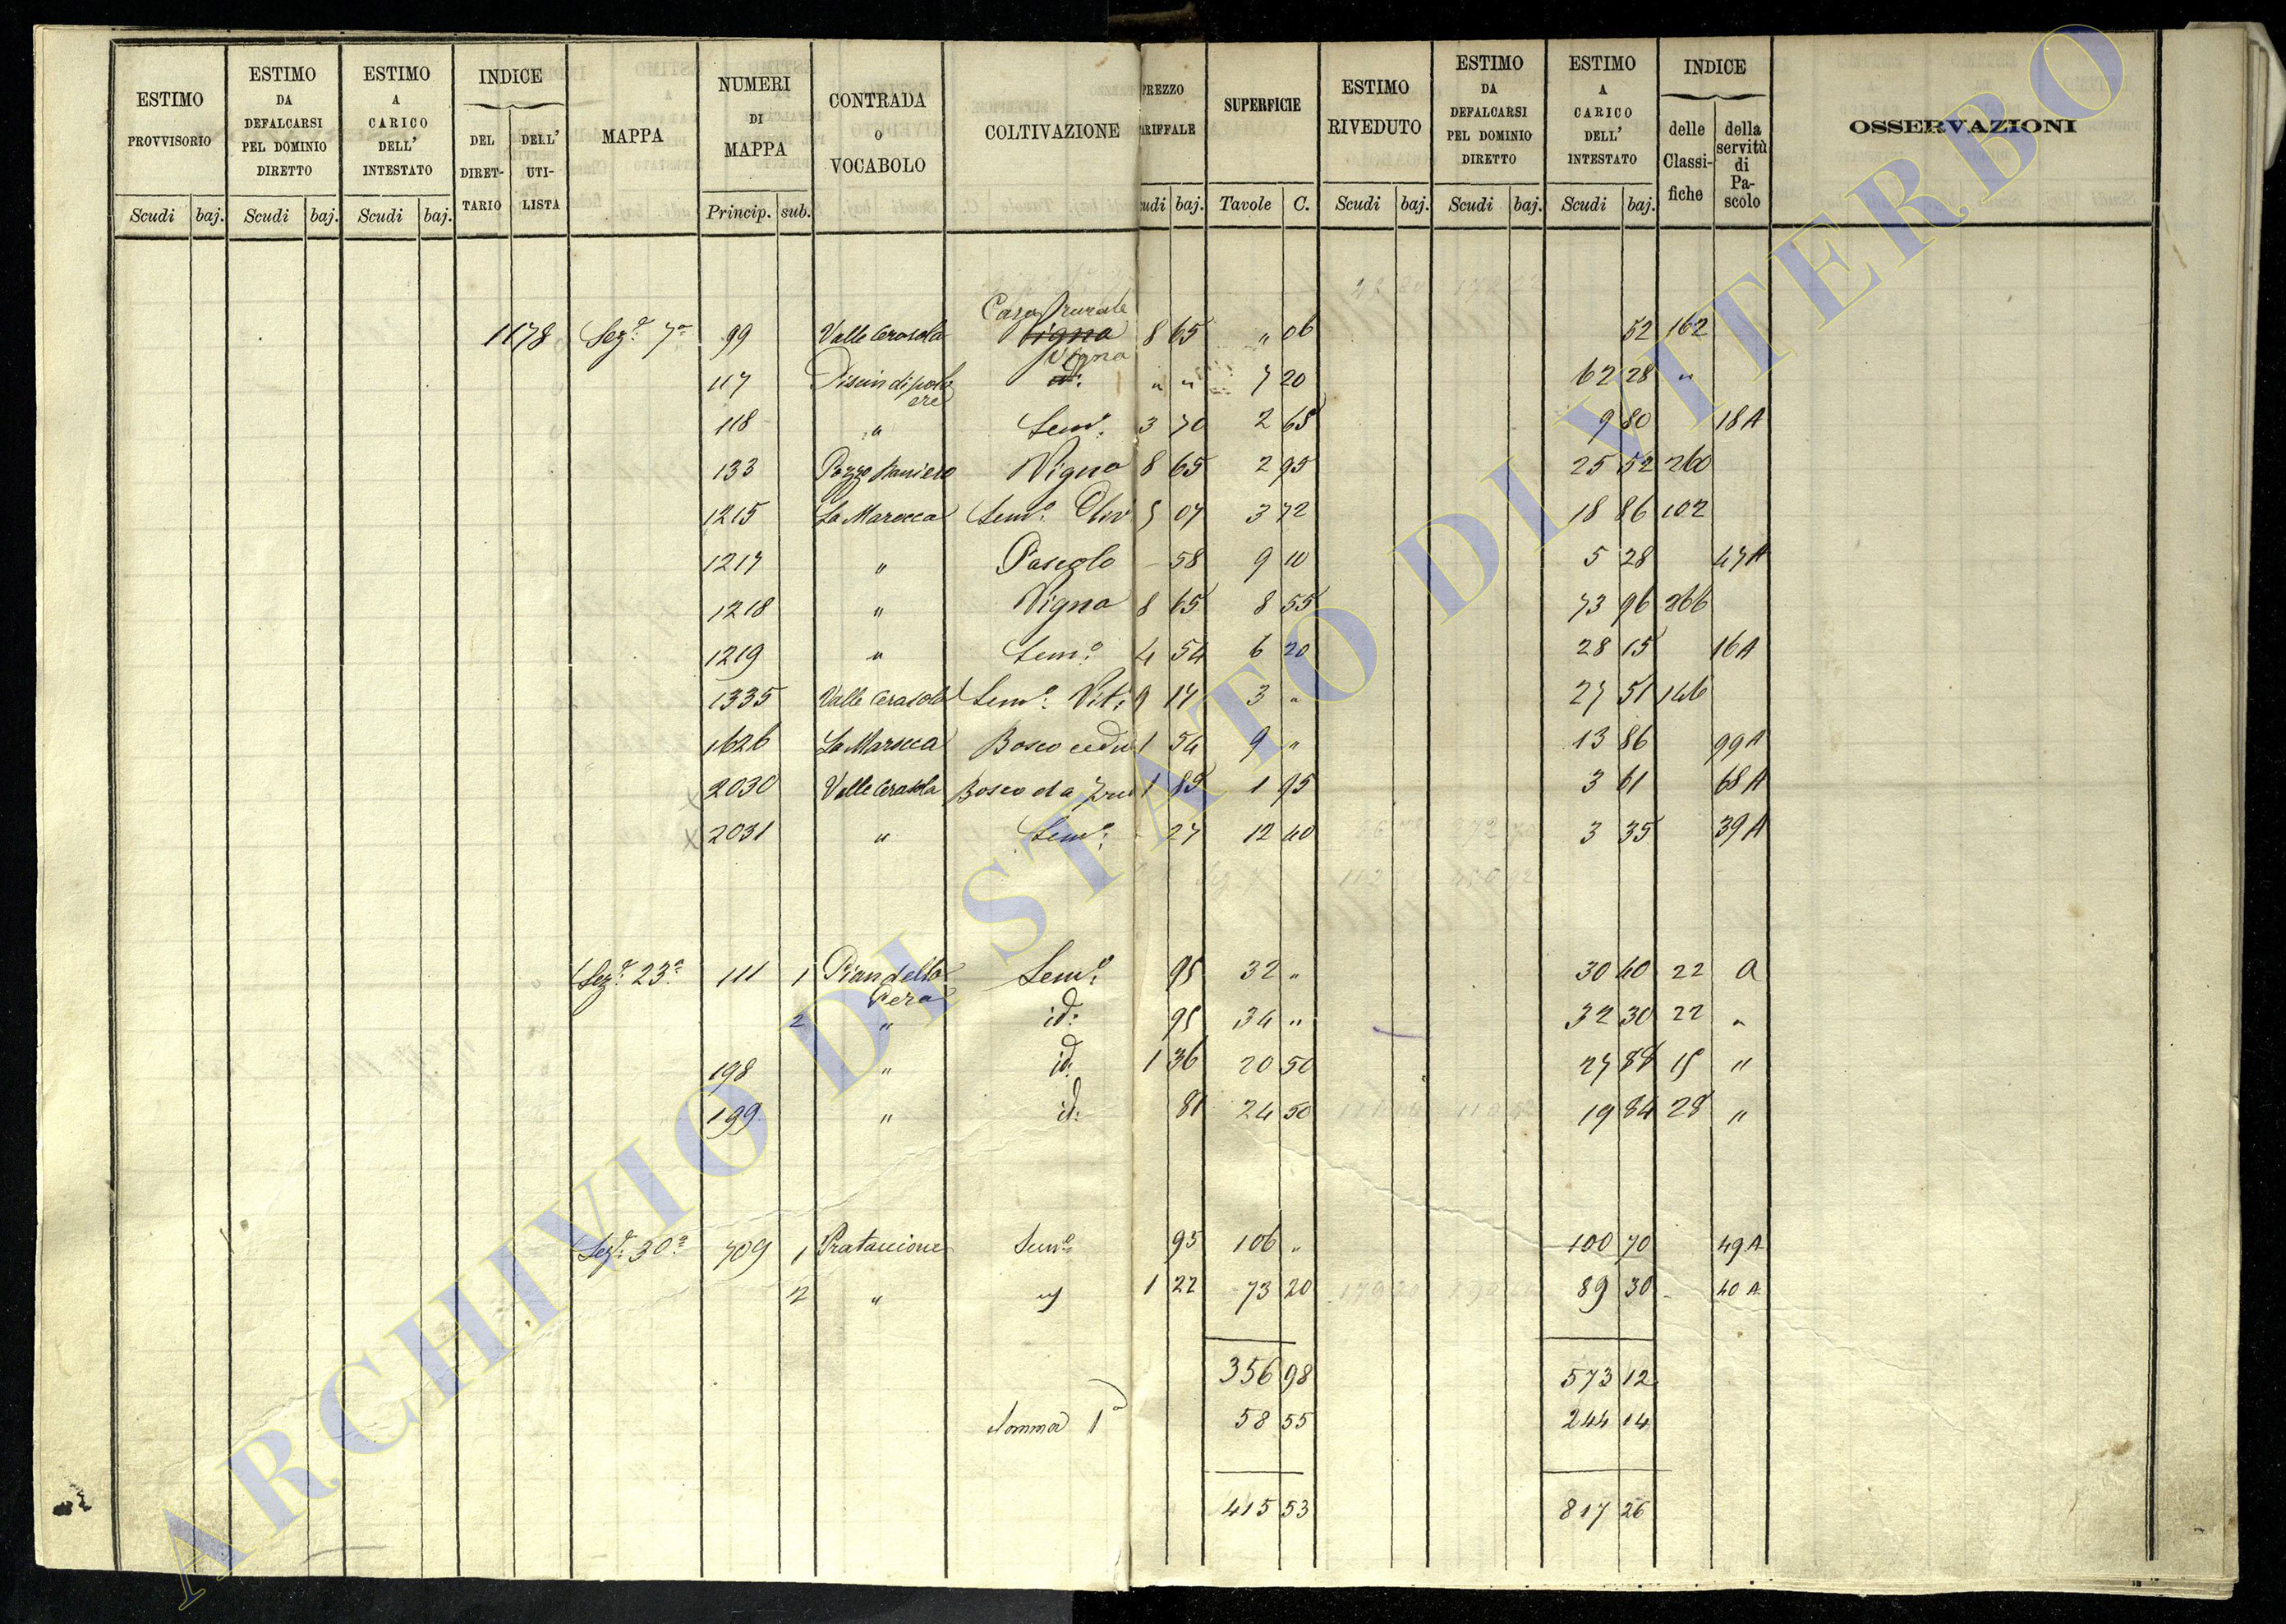 ESTIMO PROVVISORIO
ESTIMO DA DEFALCARSI PEL DOMINIO DIRETTO
ESTIMO A CARICO DELL' INTESTATO
INDICE
DEL DIRET-TARIO
DELL' UTI-LISTA
MAPPA
NUMERI DI MAPPA
CONTRADA O VOCABOLO
COLTIVAZIONE
PREZZO TARIFFALE
SUPERFICIE
ESTIMO RIVEDUTO
ESTIMO DA DEFALCARSI PEL DOMINIO DIRETTO
ESTIMO A CARICO DELL' INTESTATO
INDICE
delle Classi-fiche
della servitù di Pa-scolo
OSSERVAZIONI
Scudi baj. Scudi baj. Scudi baj. Princip. sub. udi baj. Tavole C. Scudi baj. Scudi baj. Scudi baj.
Casa rurale
1178 Sez.e 7a 99 Valle Cerasola Vigna 8 65 " 06 52 162
Vigna
117 id: " " 7 20 62 28 "
118 " Sem.o 3 70 2 65 9 80 18 A
133 Pozzo Raniero Vigna 8 65 2 95 25 52 260
1215 La Marocca Sem.o Oliv 5 07 3 72 18 86 102
1217 " Pascolo - 58 9 10 5 28 47 A
1218 " Vigna 8 65 8 55 73 96 266
1219 " Sem.o 4 54 6 20 28 15 16 A
1335 Valle Cerasola Sem.o Vit: 9 17 3 " 27 51 146
1626 La Marocca Bosco cedu 1 54 9 " 13 86 99 A
2030 Valle Cerasola Bosco da fru 1 85 1 95 3 61 68 A
x 2031 " Sem.o - 27 12 40 3 35 39 A
Sez.e 23a 111 1 Pian della Sem.o 95 32 " 30 40 22 a
Pera
2 " id: 95 34 " 32 30 22 "
198 " id: 1 36 20 50 27 88 15 "
199 " id: 81 24 50 19 84 28 "
Sez.e 30a 709 1 Pratoccione Sem.o 95 106 " 100 70 49 A
2 " 1 22 73 20 89 30 40 A
356 98 573 12
Somma 1a 58 55 244 14
415 53 817 26
ARCHIVIO DI STATO DI VITERBO